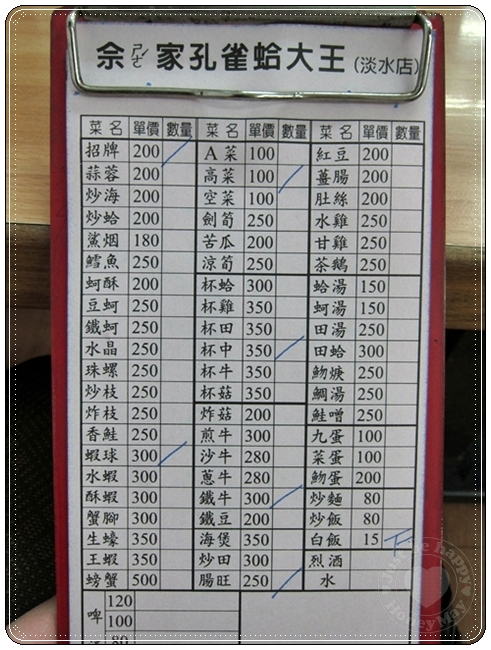 佘ㄕㄜˊ家孔雀蛤大王(淡水店)
菜名 單價 數量 菜名 單價 數量 菜名 單價 數量
招牌 200 A菜 100 紅豆 200
蒜蓉 200 高菜 100 薑腸 200
炒海 200 空菜 100 肚絲 200
炒蛤 200 劍筍 250 水雞 250
鯊烟 180 苦瓜 200 甘雞 250
鱈魚 250 涼筍 250 茶鵝 250
蚵酥 200 杯蛤 300 蛤湯 150
豆蚵 250 杯雞 350 蚵湯 150
鐵蚵 250 杯田 350 田湯 250
水晶 250 杯中 350 田蛤 300
珠螺 250 杯牛 350 魩焿 250
炒枝 250 杯菇 350 鯛湯 250
炸枝 250 炸菇 200 鮭噌 250
香鮭 250 煎牛 300 九蛋 100
蝦球 300 沙牛 280 菜蛋 100
水蝦 300 蔥牛 280 魩蛋 200
酥蝦 300 鐵牛 300 炒麵 80
蟹腳 300 鐵豆 200 炒飯 80
生蠔 350 海煲 350 白飯 15
王蝦 350 炒田 300 烈酒
螃蟹 500 腸旺 250 水
啤 120
100
80
Just be happy
Honey May